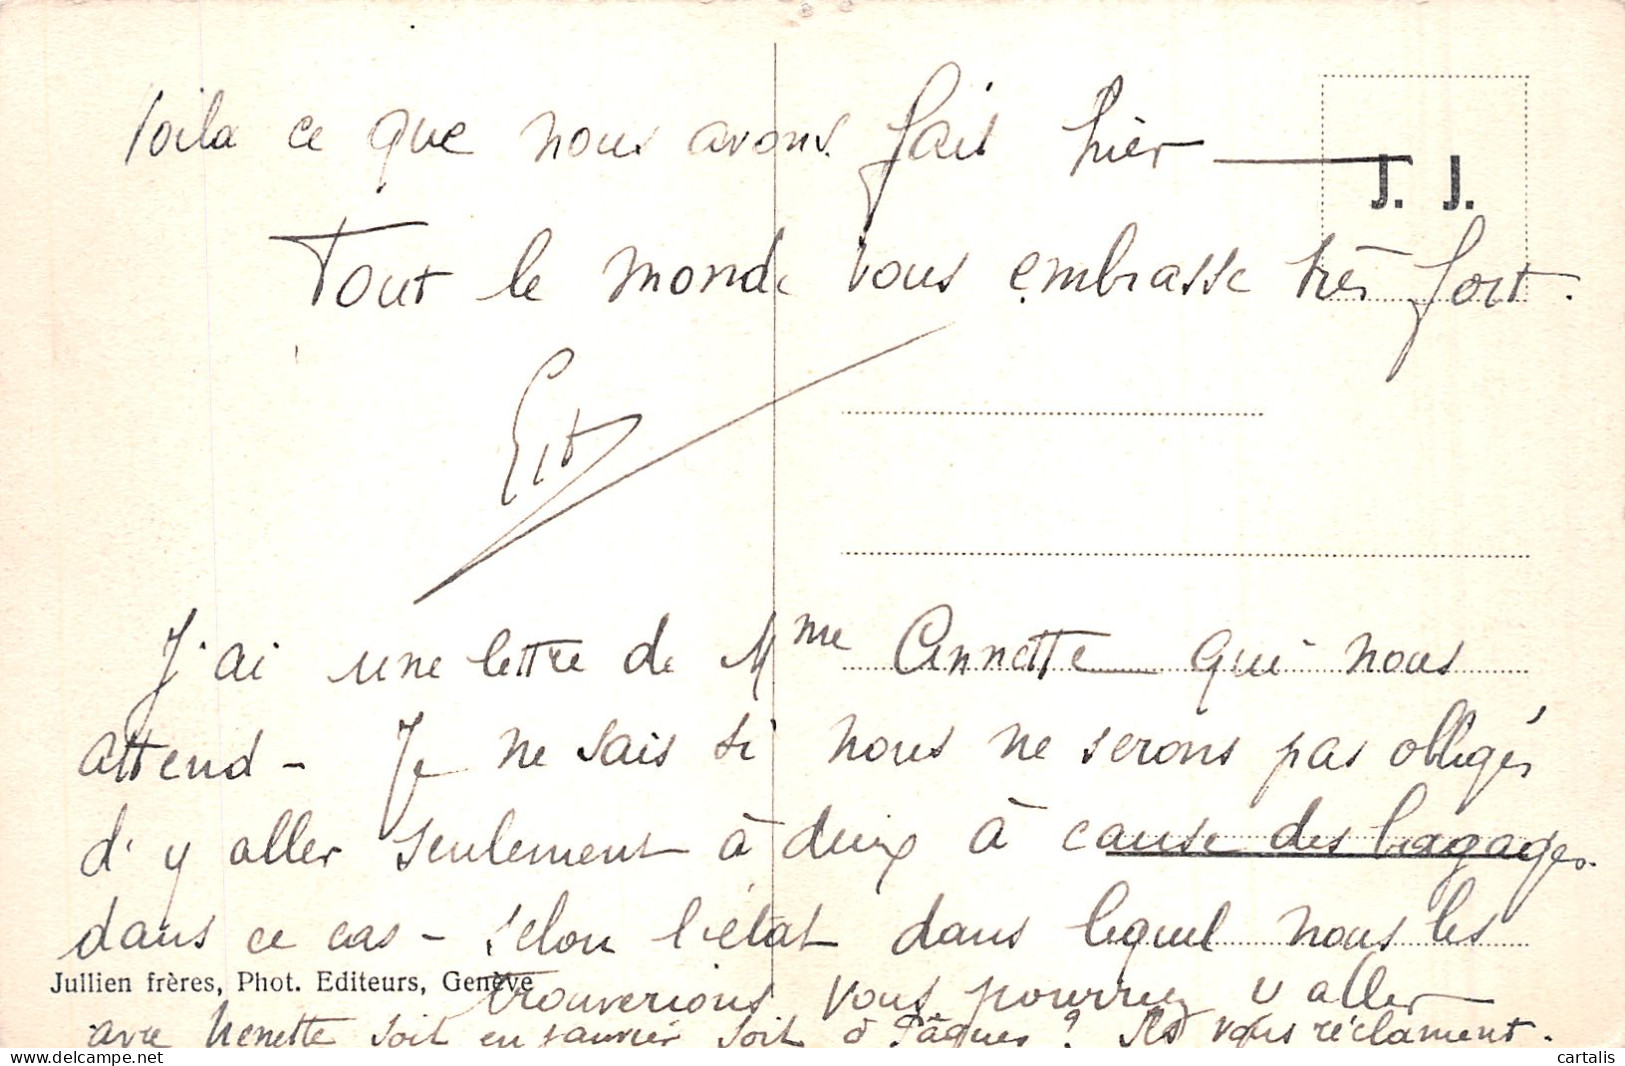 Voila ce que nous avons fait hier
J. J.
Tout le monde vous embrasse très fort.
J'ai une lettre de Mme Annette qui nous
attend - Je ne sais si nous ne serons pas obligés
d'y aller seulement à deux à cause des bagages.
dans ce cas - selon l'état dans lequel nous les
Jullien frères, Phot. Editeurs, Genève
trouverions vous pourriez y aller
avec Nenette soit en janvier soit à Pâques ? Ils vous réclament.
cartalis